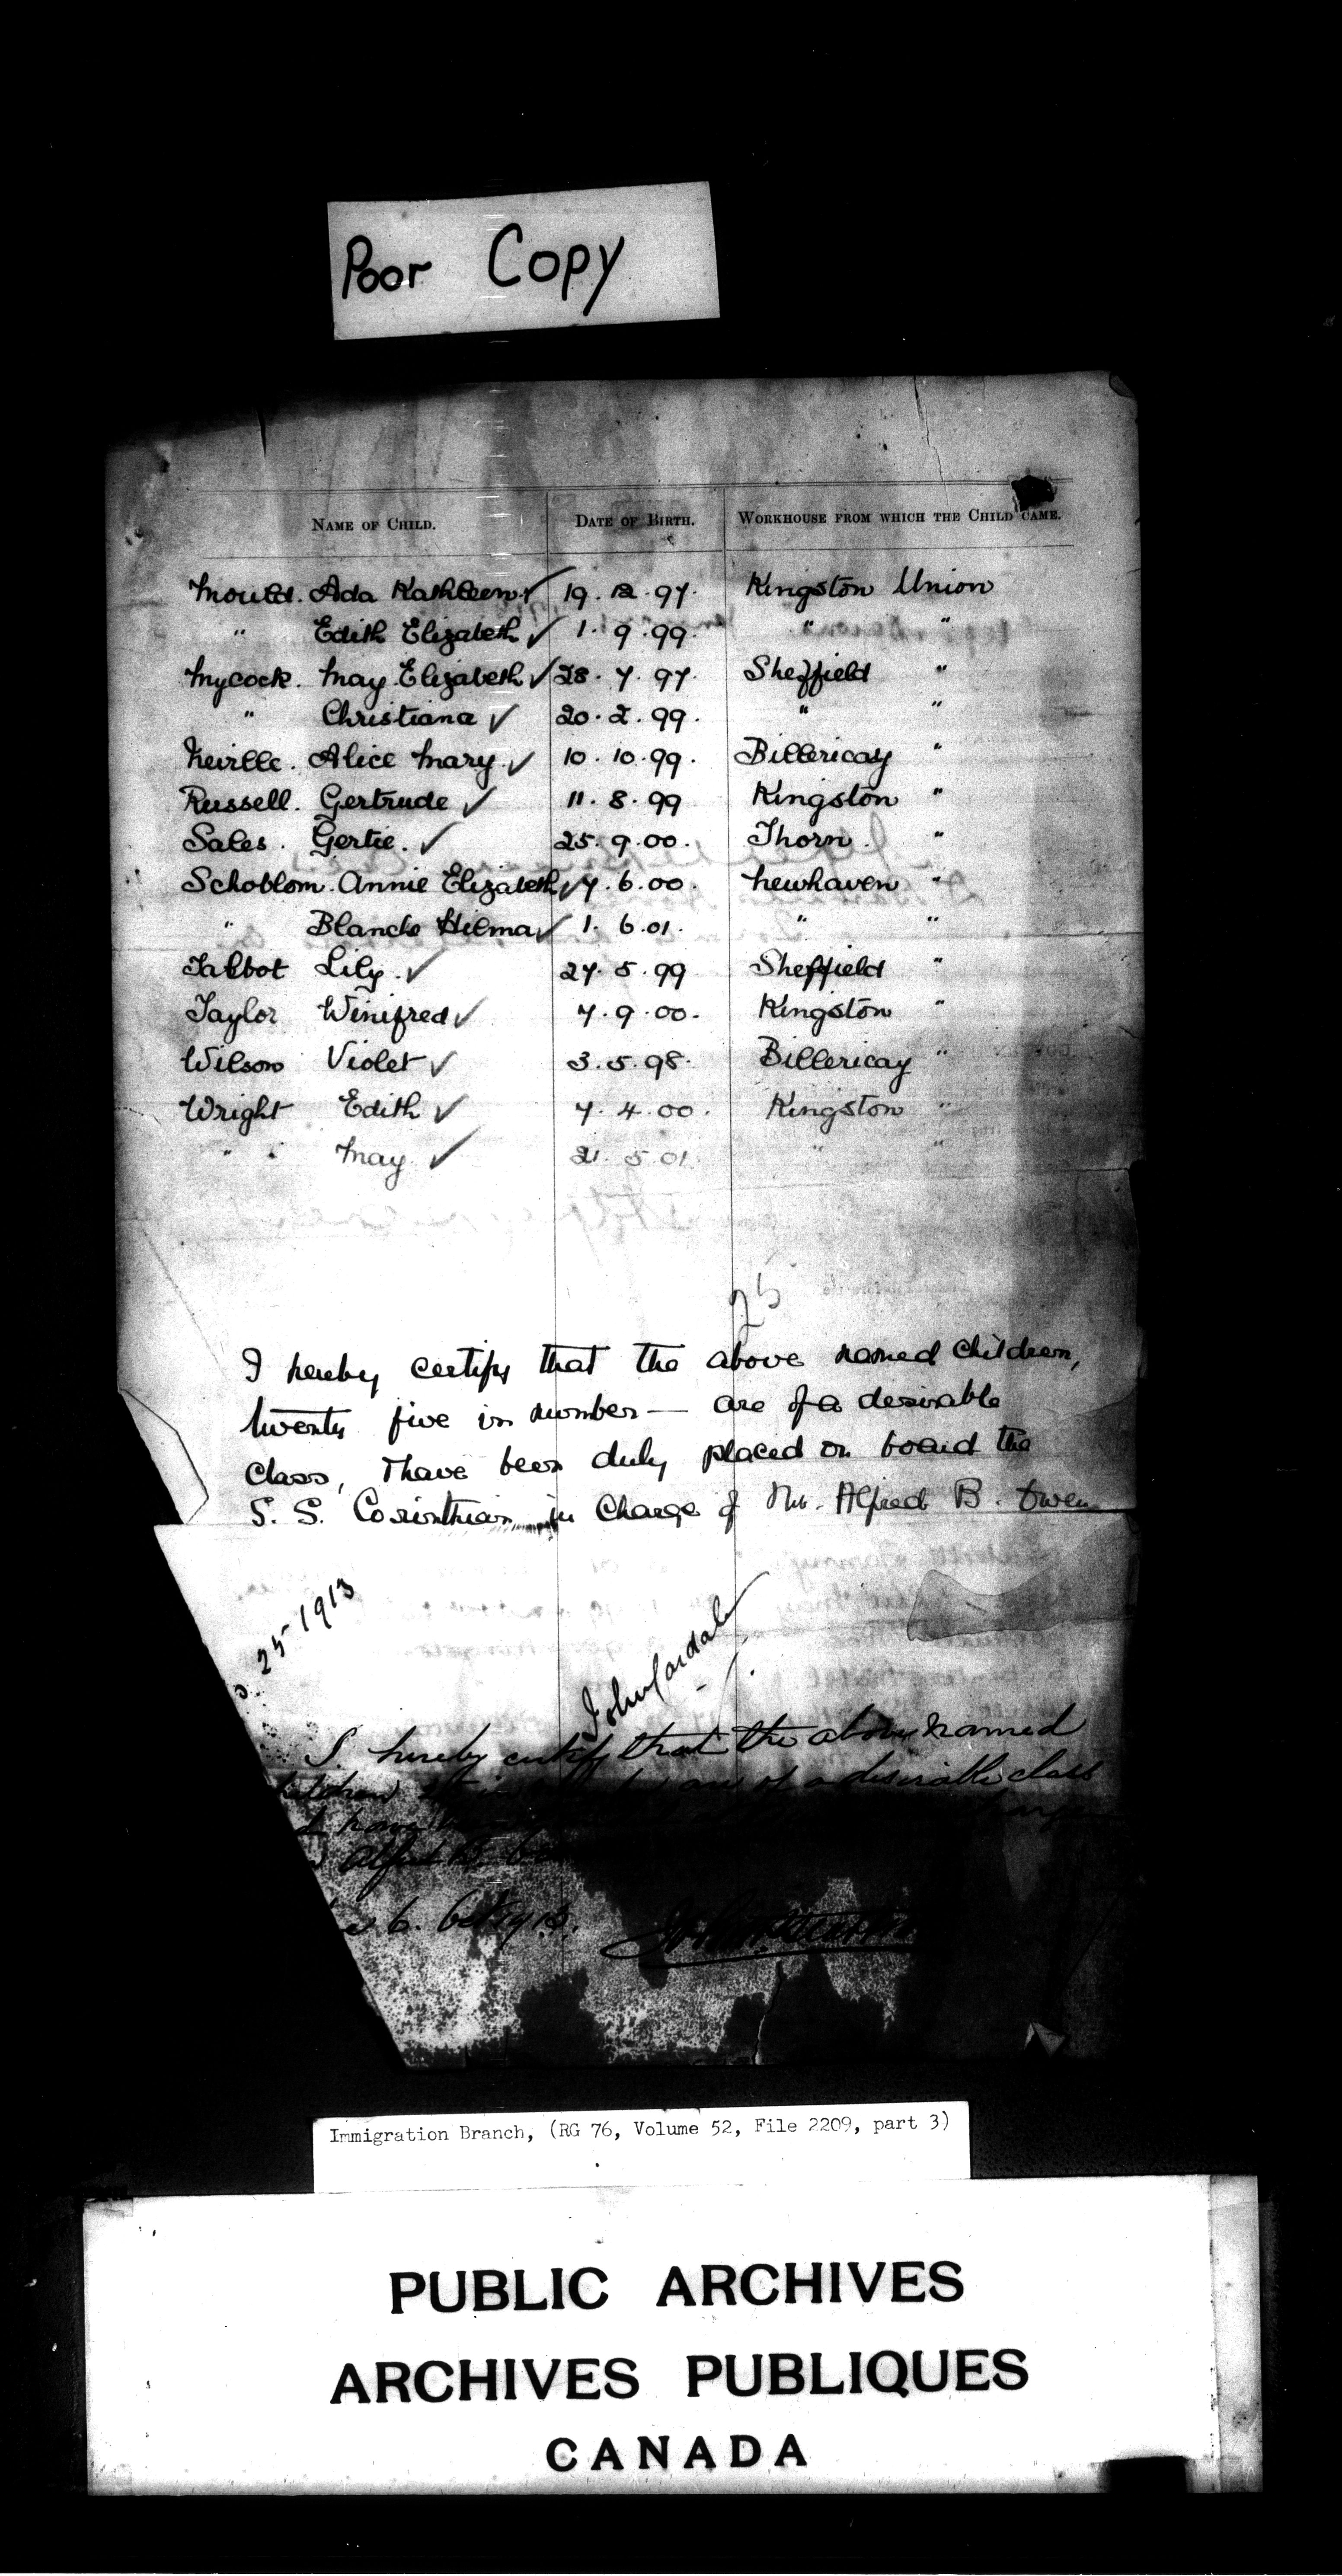 Poor Copy
NAME OF CHILD. DATE OF BIRTH. WORKHOUSE FROM WHICH THE CHILD CAME.
Mould. Ada Kathleen ✓ 19. 12. 97. Kingston Union
" Edith Elizabeth ✓ 1. 9. 99. " "
Mycock. May Elizabeth ✓ 28. 7. 97. Sheffield "
" Christiana ✓ 20. 2. 99. " "
Neville. Alice Mary. ✓ 10. 10. 99. Billericay "
Russell. Gertrude ✓ 11. 8. 99 Kingston "
Sales. Gertie. ✓ 25. 9. 00. Thorn. "
Schoblom. Annie Elizabeth ✓ 7. 6. 00. Newhaven "
" Blanche Hilma ✓ 1. 6. 01. " "
Talbot Lily. ✓ 27. 5. 99 Sheffield "
Taylor Winifred ✓ 7. 9. 00. Kingston "
Wilson Violet ✓ 3. 5. 98. Billericay "
Wright Edith ✓ 7. 4. 00. Kingston "
" " May. ✓ 21. 5. 01. " "
25
I hereby certify that the above named children,
twenty five in number — are of a desirable
class, & have been duly placed on board the
S. S. Corinthian in charge of Mr. Alfred B. Owen
25-1913
John Cardale
I hereby certify that the above named
are of a desirable class
I have
Alfred B.
6.
Immigration Branch, (RG 76, Volume 52, File 2209, part 3)
PUBLIC ARCHIVES
ARCHIVES PUBLIQUES
CANADA